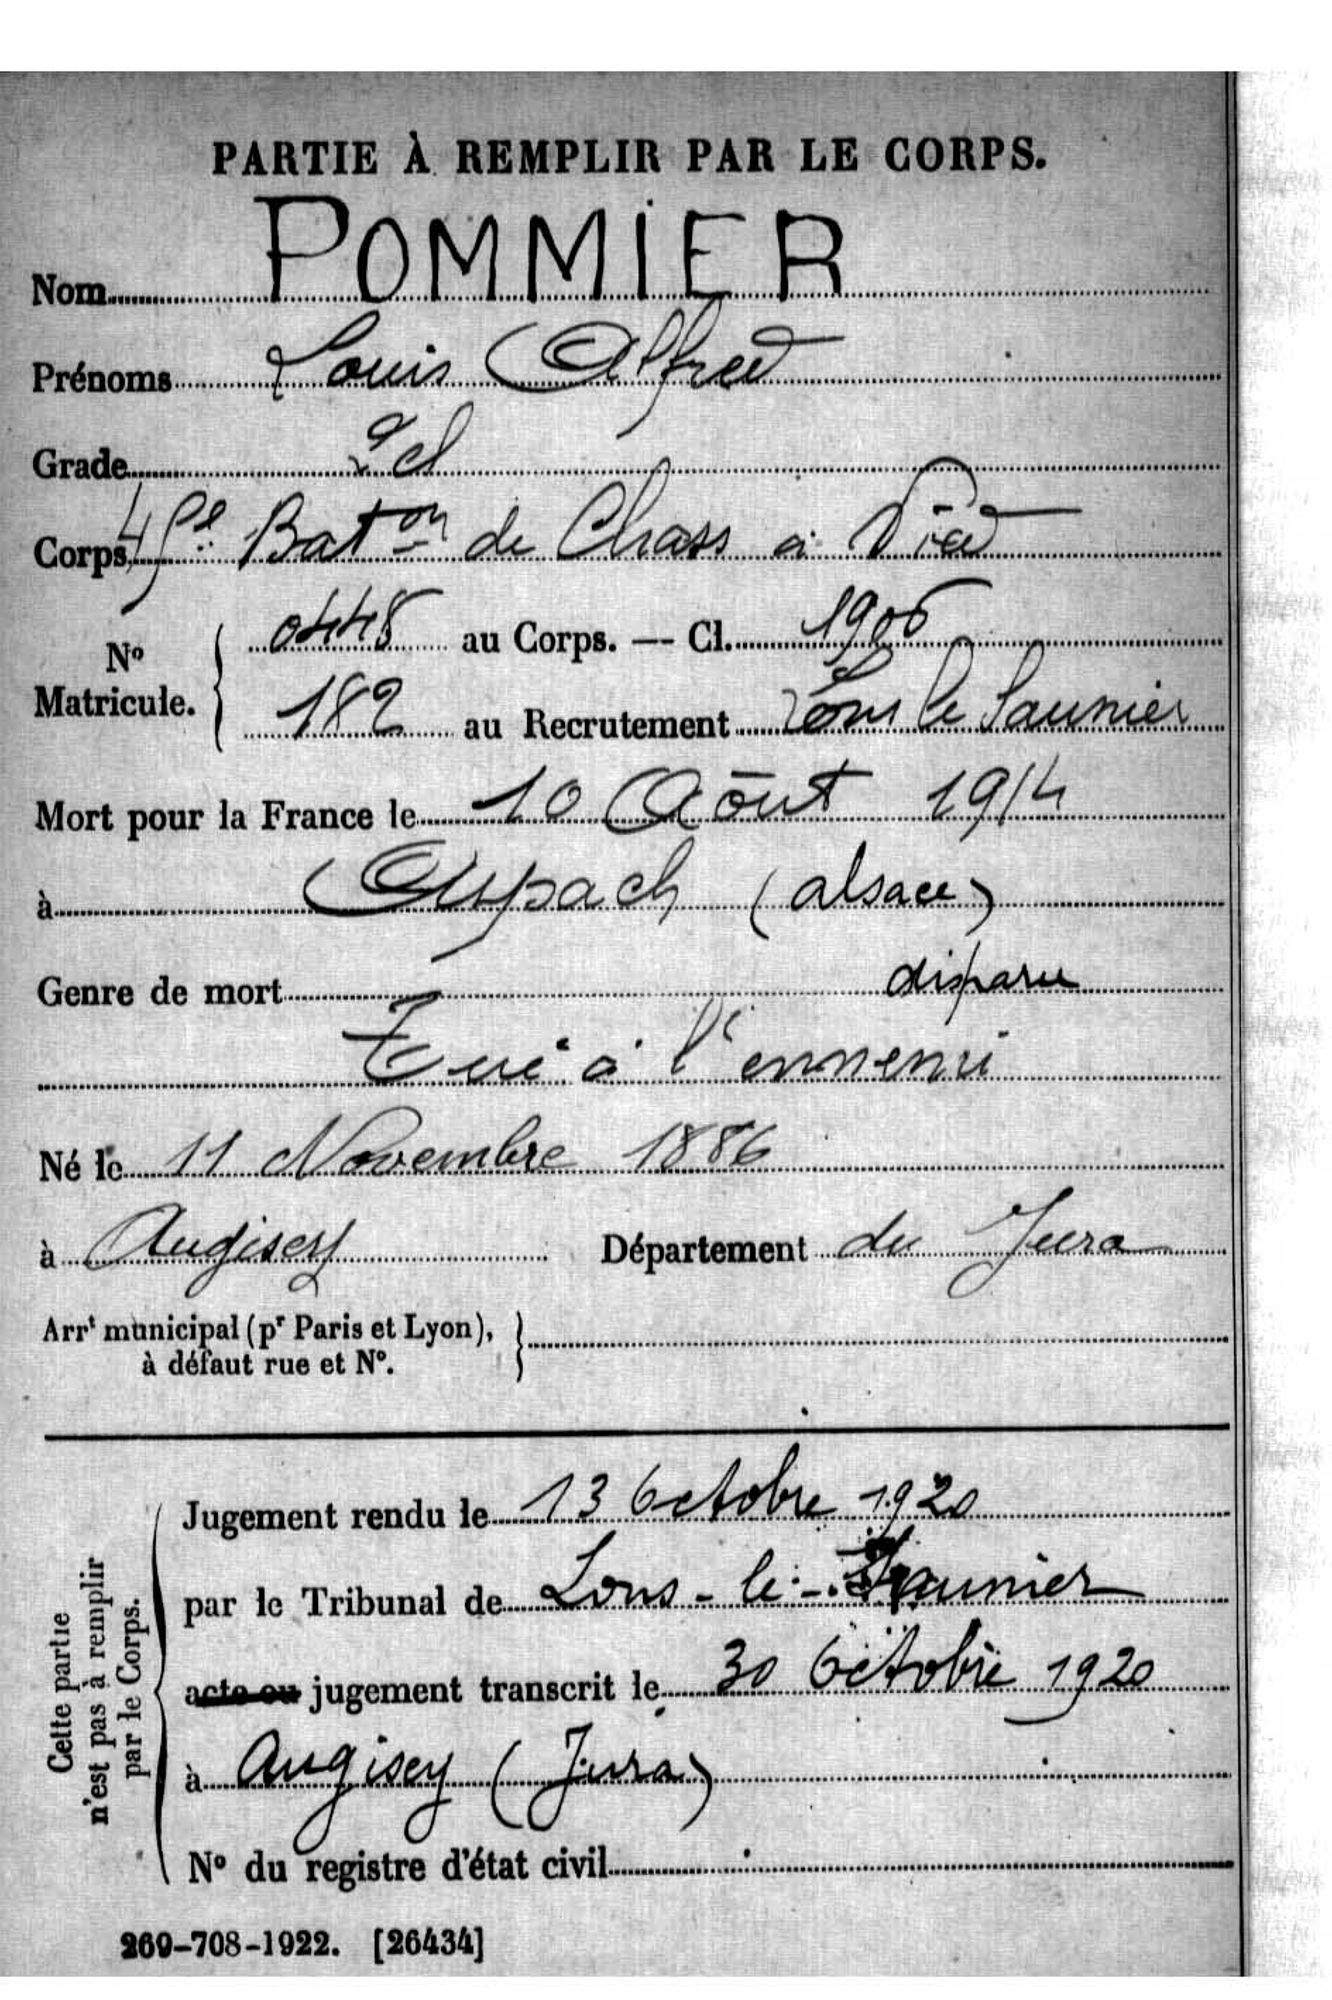 PARTIE À REMPLIR PAR LE CORPS.
Nom POMMIER
Prénoms Louis Alfred
Grade 2cl
Corps 45e Baton de Chass à Pied
No Maticule. { 0448 au Corps. — Cl. 1906
182 au Recrutement Lons le Saunier
Mort pour la France le 10 Aôut 1914
à Aspach (alsace)
Genre de mort disparu
Tué à l'ennemi
Né le 11 Novembre 1886
à Augisey Département du Jura
Arrt municipal (pr Paris et Lyon), à défaut rue et No.
Cette partie n'est pas à remplir par le Corps.
Jugement rendu le 13 Octobre 1920
par le Tribunal de Lons-le-Saunier
acte ou jugement transcrit le 30 Octobre 1920
à Augisey (Jura)
No du registre d'état civil
269-708-1922. [26434]